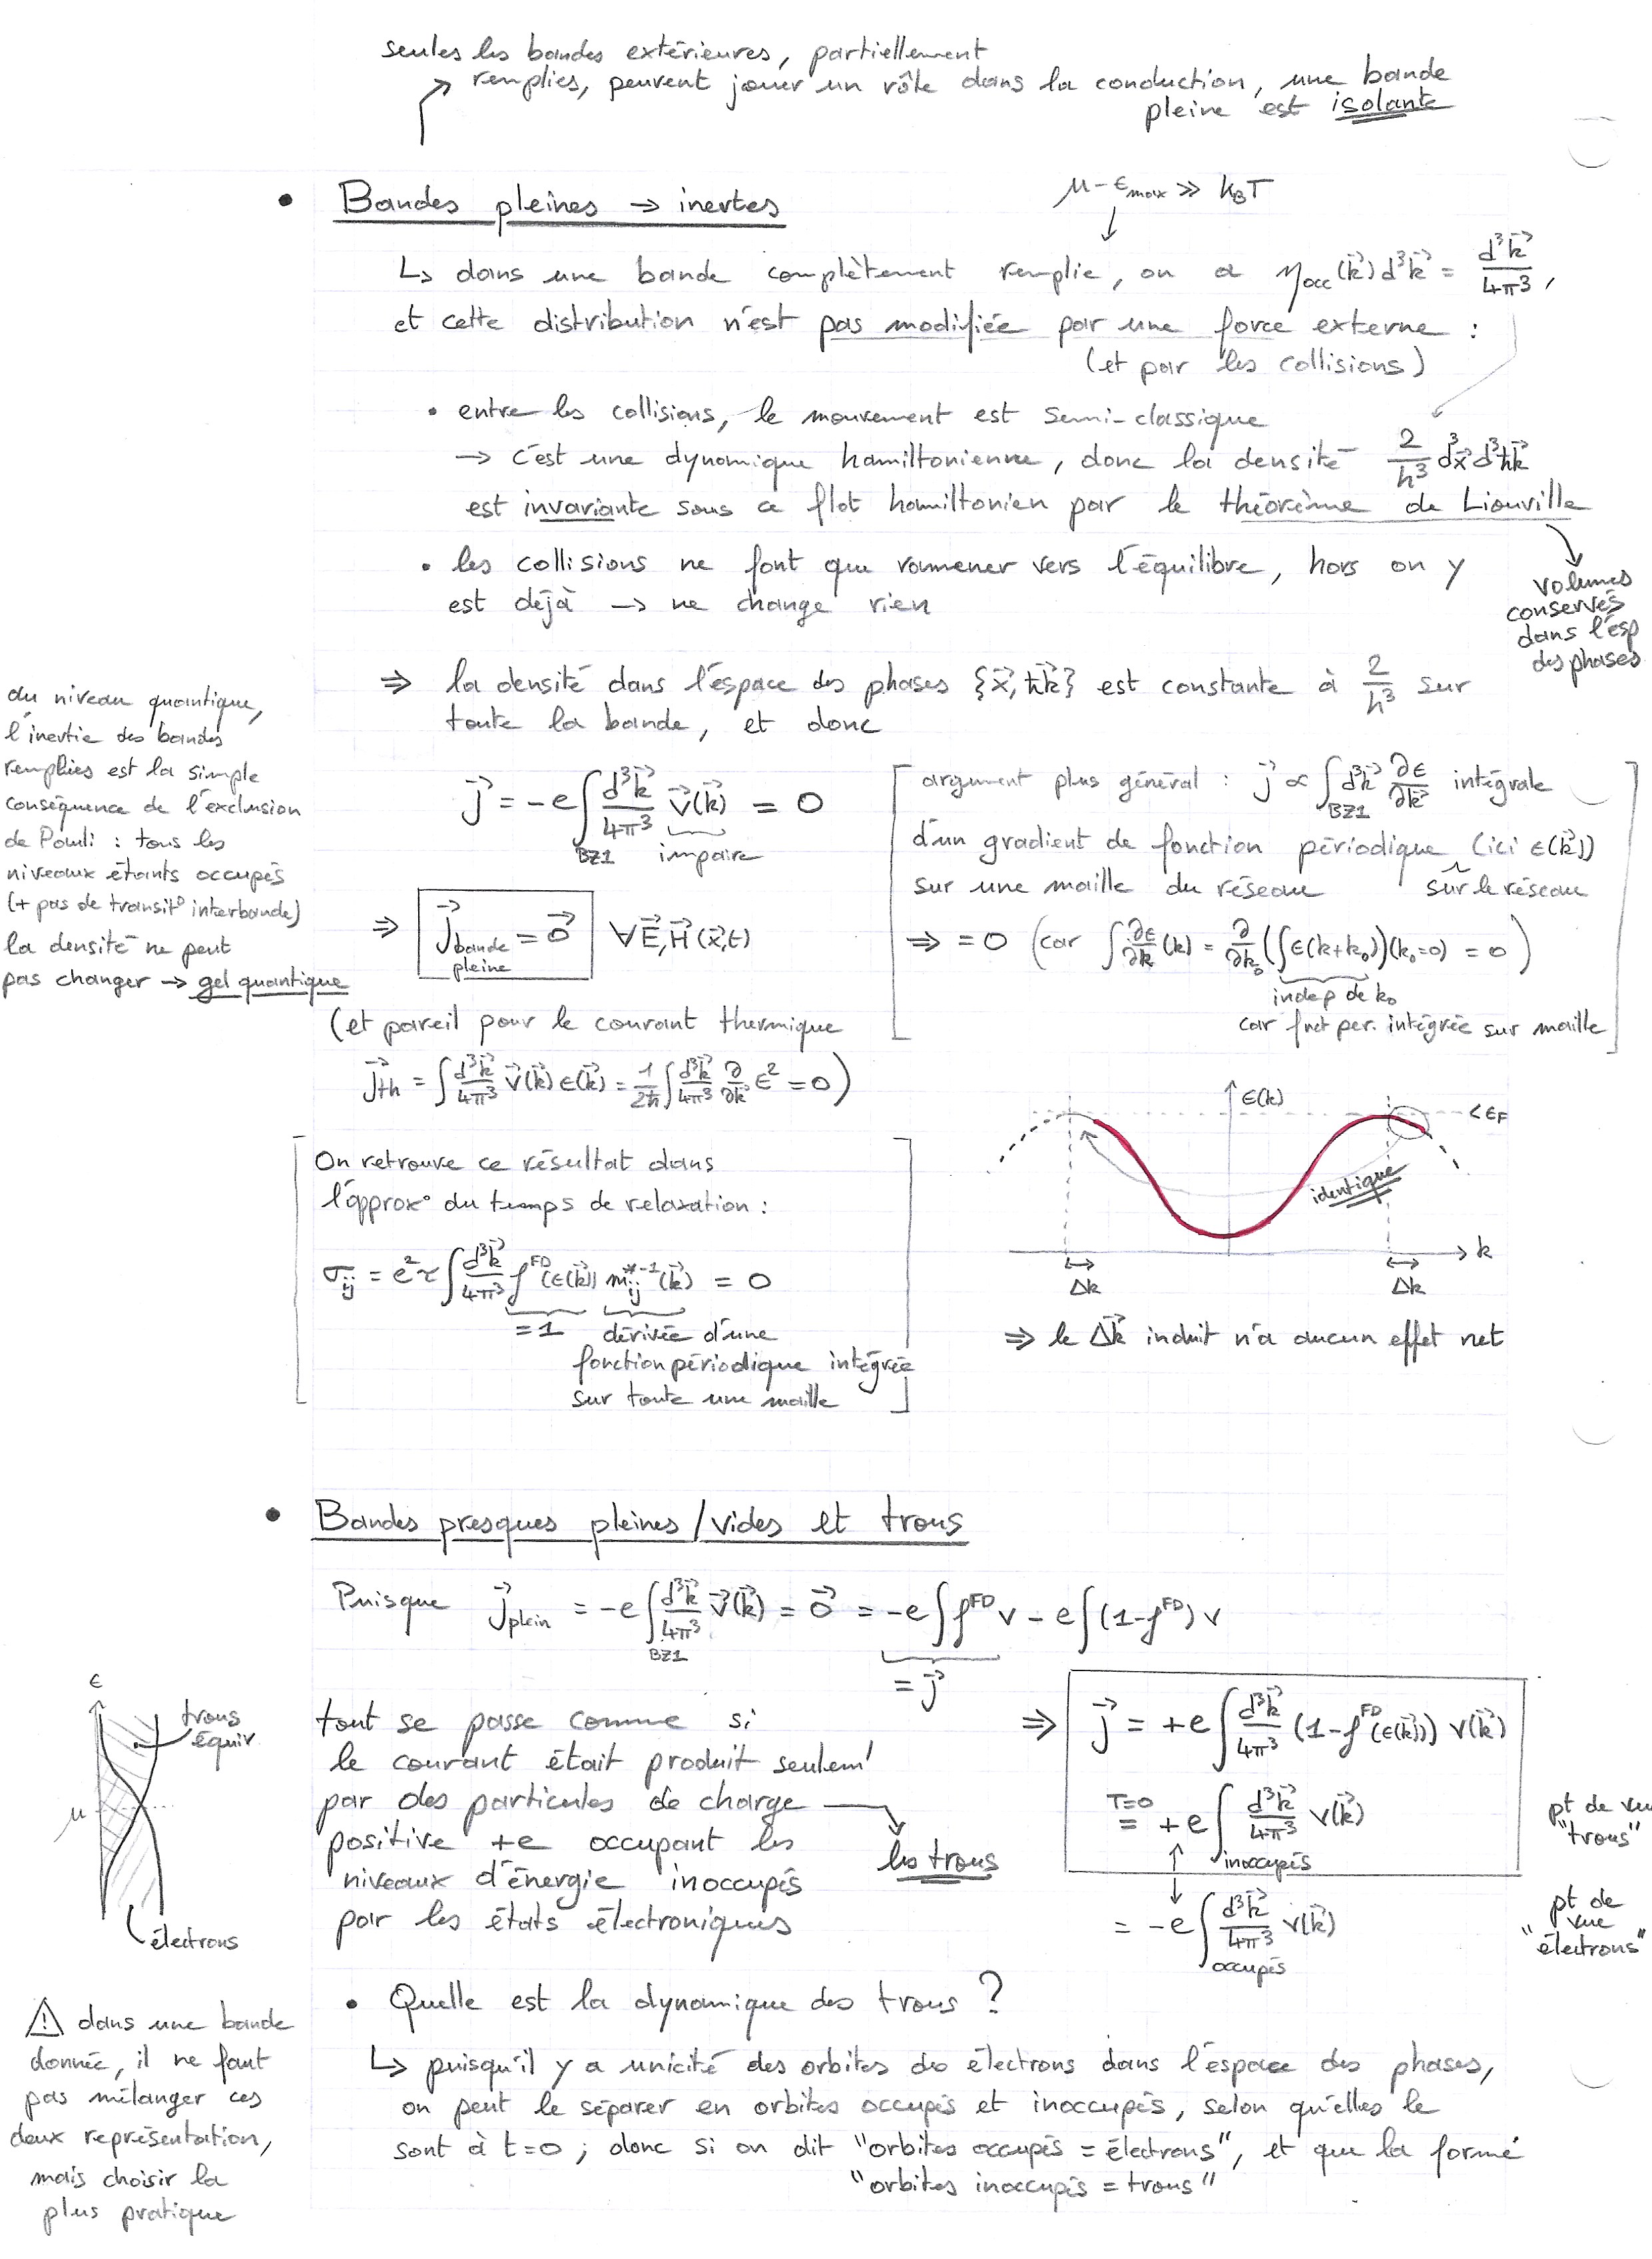 seules les bandes extérieures, partiellement
remplies, peuvent jouer un rôle dans la conduction, une bande
pleine est isolante
• Bandes pleines → inertes
μ - ϵmax ≫ kBT
↳ dans une bande complètement remplie, on a ηocc(k⃗)d³k⃗ = d³k⃗/4π³,
et cette distribution n'est pas modifiée par une force externe :
(et par les collisions)
• entre les collisions, le mouvement est semi-classique
→ c'est une dynamique hamiltonienne, donc la densité 2/h³ d³x⃗ d³ħk⃗
est invariante sous ce flot hamiltonien par le théorème de Liouville
volumes
conservés
dans l'esp
des phases
• les collisions ne font que ramener vers l'équilibre, hors on y
est déjà → ne change rien
⇒ la densité dans l'espace des phases {x⃗, ħk⃗} est constante à 2/h³ sur
toute la bande, et donc
du niveau quantique,
l'inertie des bandes
remplies est la simple
conséquence de l'exclusion
de Pauli : tous les
niveaux étants occupés
(+ pas de transit° interbande)
la densité ne peut
pas changer → gel quantique
j⃗ = -e ∫BZ1 d³k⃗/4π³ v⃗(k⃗) = 0
impaire
⇒ j⃗ bande pleine = 0⃗ ∀ E⃗, H⃗ (x⃗,t)
[argument plus général : j⃗ ∝ ∫BZ1 d³k⃗ ∂ϵ/∂k⃗ intégrale
d'un gradient de fonction périodique (ici ϵ(k⃗))
sur une maille du réseau sur le réseau
⇒ = 0 (car ∫ ∂ϵ/∂k (k) = ∂/∂k₀ (∫ϵ(k+k₀))(k₀=0) = 0)
indep de k₀
car fnct per. intégrée sur maille]
(et pareil pour le courant thermique
j⃗th = ∫ d³k⃗/4π³ v⃗(k⃗) ϵ(k⃗) = 1/2ħ ∫ d³k⃗/4π³ ∂/∂k⃗ ϵ² = 0)
[On retrouve ce résultat dans
l'approx° du temps de relaxation :
σij = e²τ ∫ d³k⃗/4π³ fFD(ϵ(k⃗)) m*-1ij(k⃗) = 0
= 1 dérivée d'une
fonction périodique intégrée
sur toute une maille]
ϵ(k)
< ϵF
identique
k
Δk
Δk
⇒ le Δk⃗ induit n'a aucun effet net
• Bandes presques pleines / vides et trous
Puisque j⃗plein = -e ∫BZ1 d³k⃗/4π³ v⃗(k⃗) = 0⃗ = -e ∫ fFD v - e ∫ (1-fFD) v
= j⃗
ϵ
trous
équiv
μ
électrons
tout se passe comme si
le courant était produit seulemt
par des particules de charge
positive +e occupant les
niveaux d'énergie inoccupés
par les états électroniques
les trous
⇒ j⃗ = +e ∫ d³k⃗/4π³ (1-fFD(ϵ(k⃗))) v(k⃗)
T=0
= +e ∫inoccupés d³k⃗/4π³ v(k⃗)
pt de vue
"trous"
= -e ∫occupés d³k⃗/4π³ v(k⃗)
pt de
vue
"électrons"
• Quelle est la dynamique des trous ?
⚠ dans une bande
donnée, il ne faut
pas mélanger ces
deux représentation,
mais choisir la
plus pratique
↳ puisqu'il y a unicité des orbites des électrons dans l'espace des phases,
on peut le séparer en orbites occupés et inoccupés, selon qu'elles le
sont à t=0 ; donc si on dit "orbites occupés = électrons", et que la formé
"orbites inoccupés = trous"